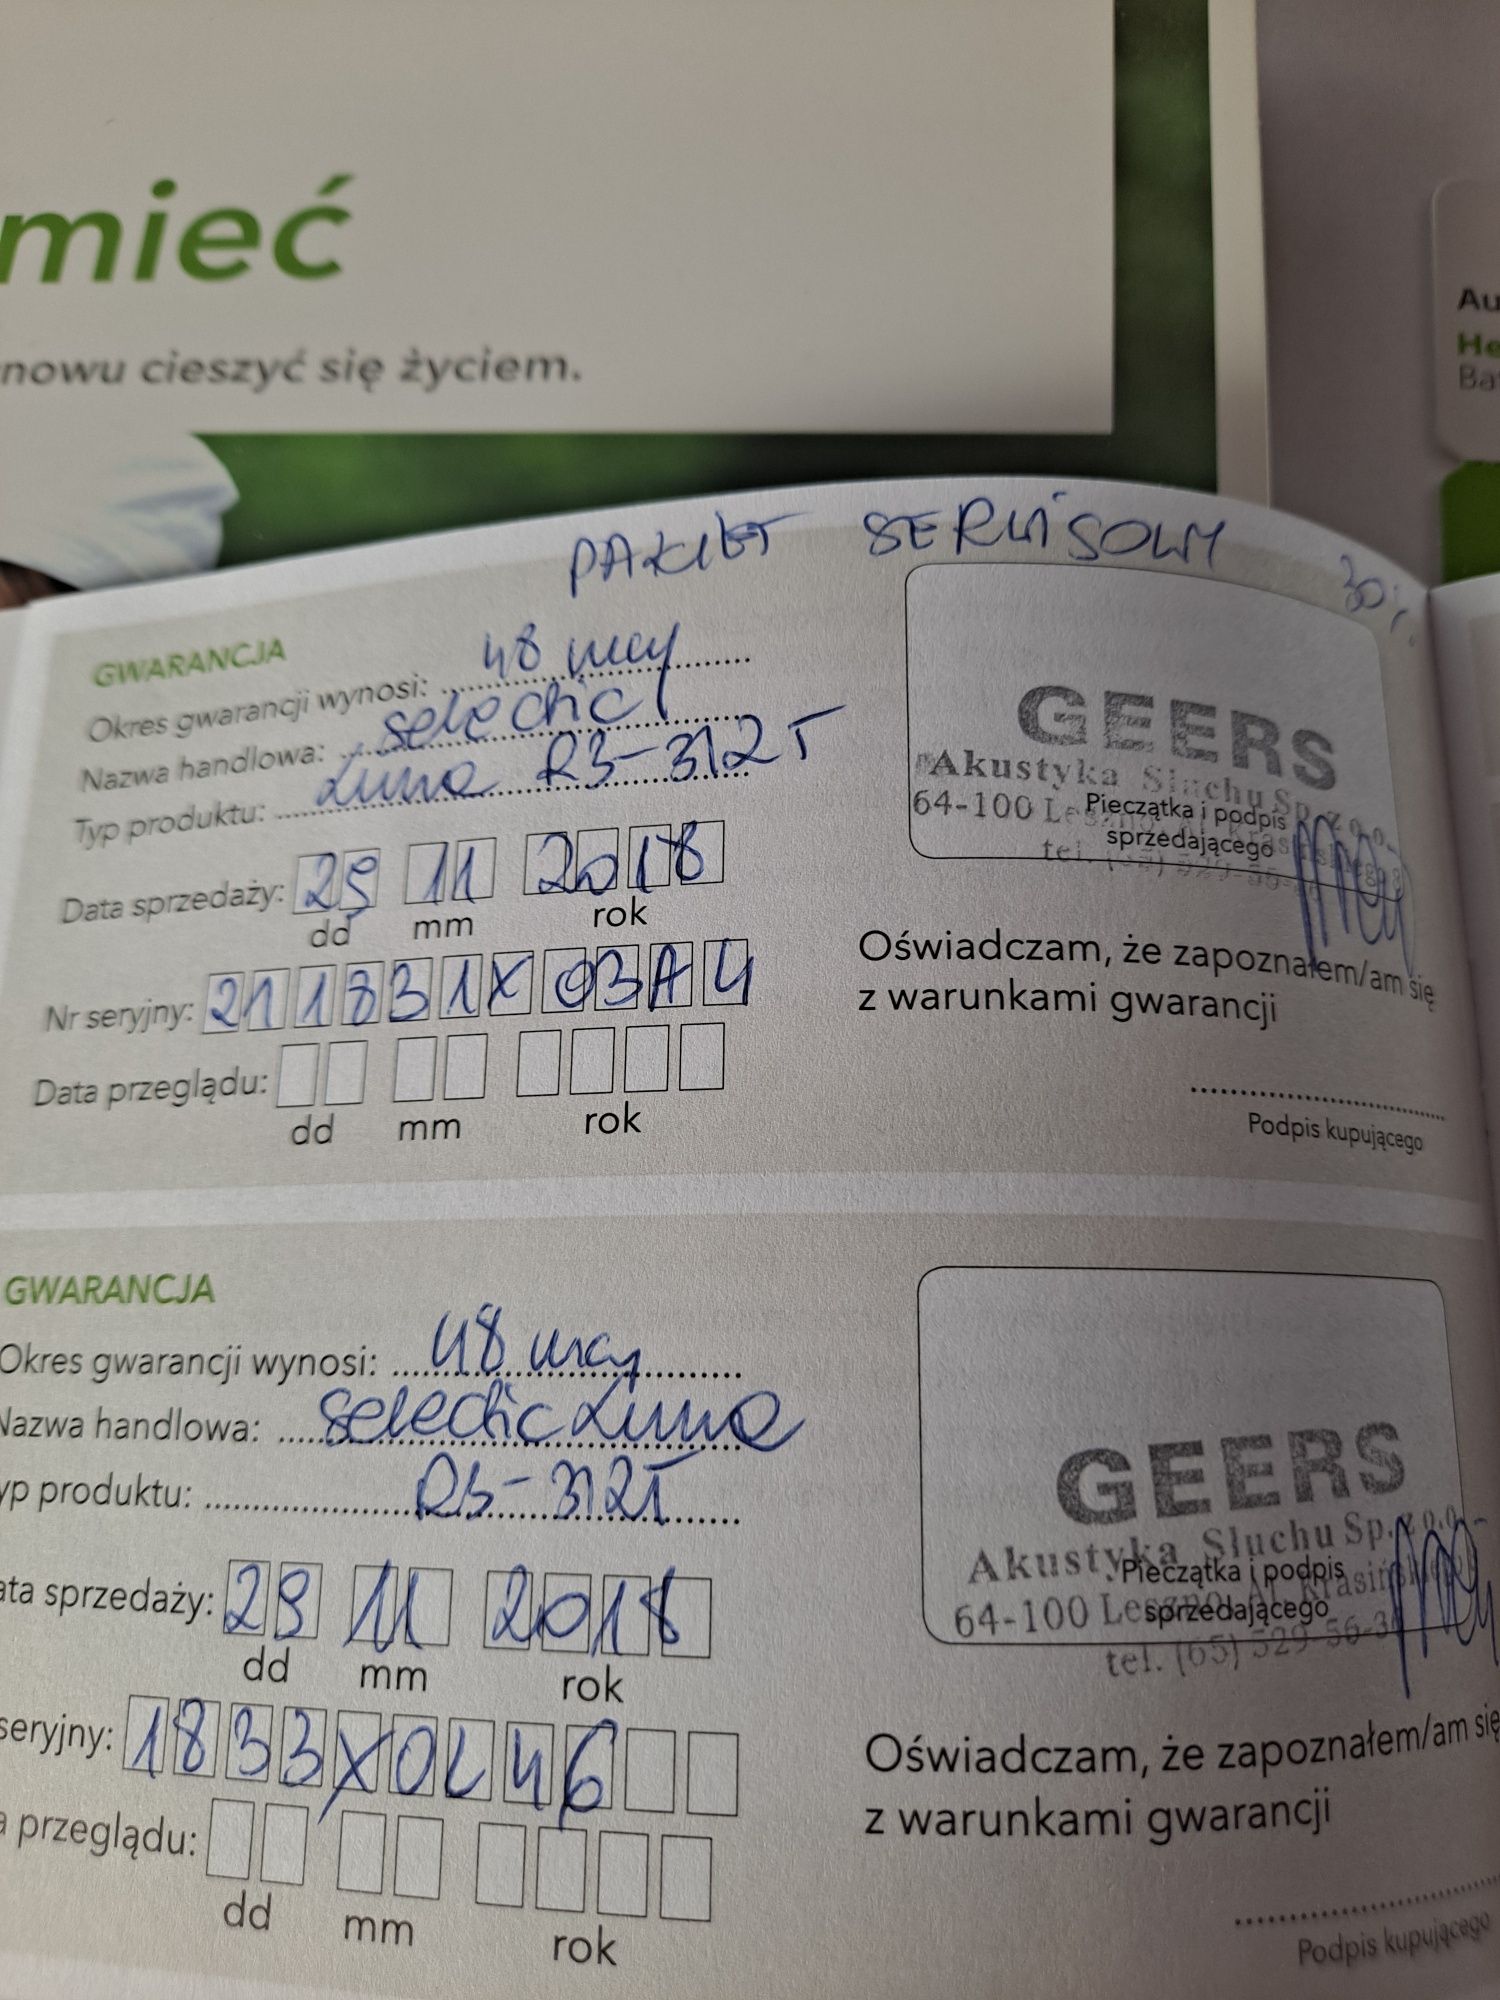 mieć
nowu cieszyć się życiem.
Au
He
Ba
PAKIET SERWISOWY
30,-
GWARANCJA
Okres gwarancji wynosi: 48 mcy
Nazwa handlowa: selectic
Typ produktu: Luna R3-312T
Data sprzedaży: 29 11 2018
dd mm rok
Nr seryjny: 211831X03A4
Data przeglądu:
dd mm rok
GEERS
Akustyka Słuchu Sp. z o.o.
64-100
Pieczątka i podpis
sprzedającego
tel.
Oświadczam, że zapoznałem/am się
z warunkami gwarancji
Podpis kupującego
GWARANCJA
Okres gwarancji wynosi: 48 mcy
Nazwa handlowa: selectic Luna
yp produktu: R3-312T
ata sprzedaży: 29 11 2018
dd mm rok
seryjny: 1833X0L46
a przeglądu:
dd mm rok
GEERS
Akustyka Słuchu Sp. z o.o.
64-100 Leszno, Al. Krasińskiego
Pieczątka i podpis
sprzedającego
tel. (65) 529-56-3
Oświadczam, że zapoznałem/am się
z warunkami gwarancji
Podpis kupującego